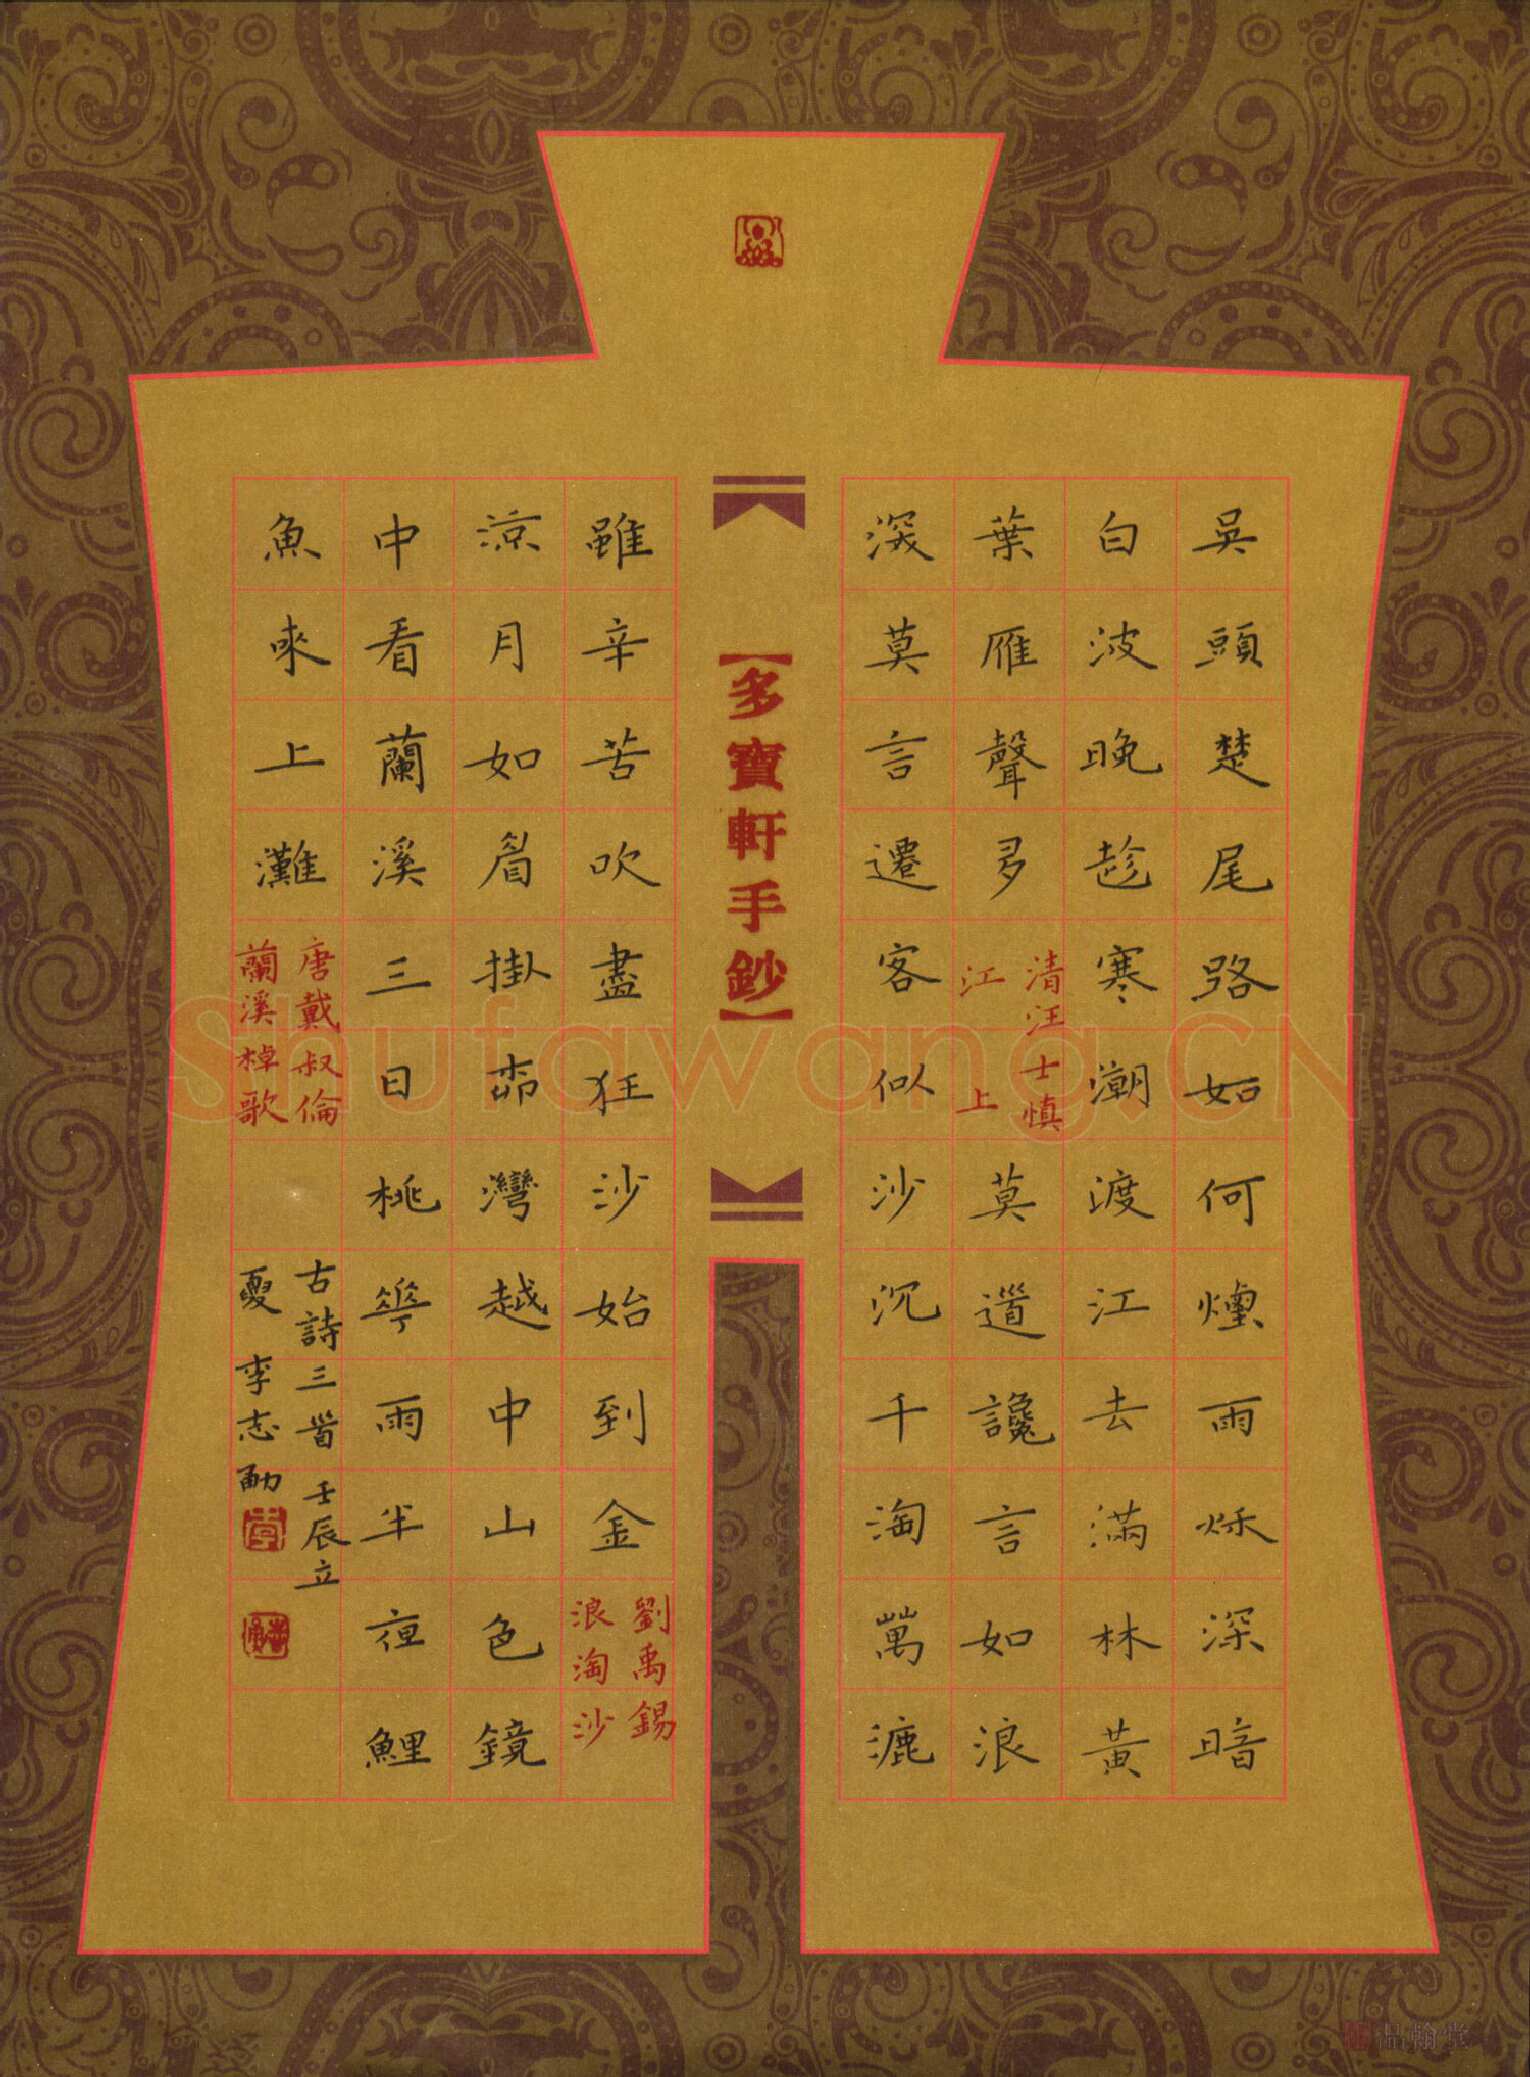 吳頭楚尾路如何煙雨秌深暗
白波晚趁寒潮渡江去滿林黃
葉雁聲多
清汪士慎
江上
莫道讒言如浪
深莫言遷客似沙沉千淘萬漉
【多寶軒手鈔】
雖辛苦吹盡狂沙始到金
劉禹錫
浪淘沙
涼月如眉掛柳灣越中山色鏡
中看蘭溪三日桃華雨半夜鯉
魚來上灘
唐戴叔倫
蘭溪棹歌
古詩三首壬辰立
夏李志勈
Shufawang.CN
品翰堂